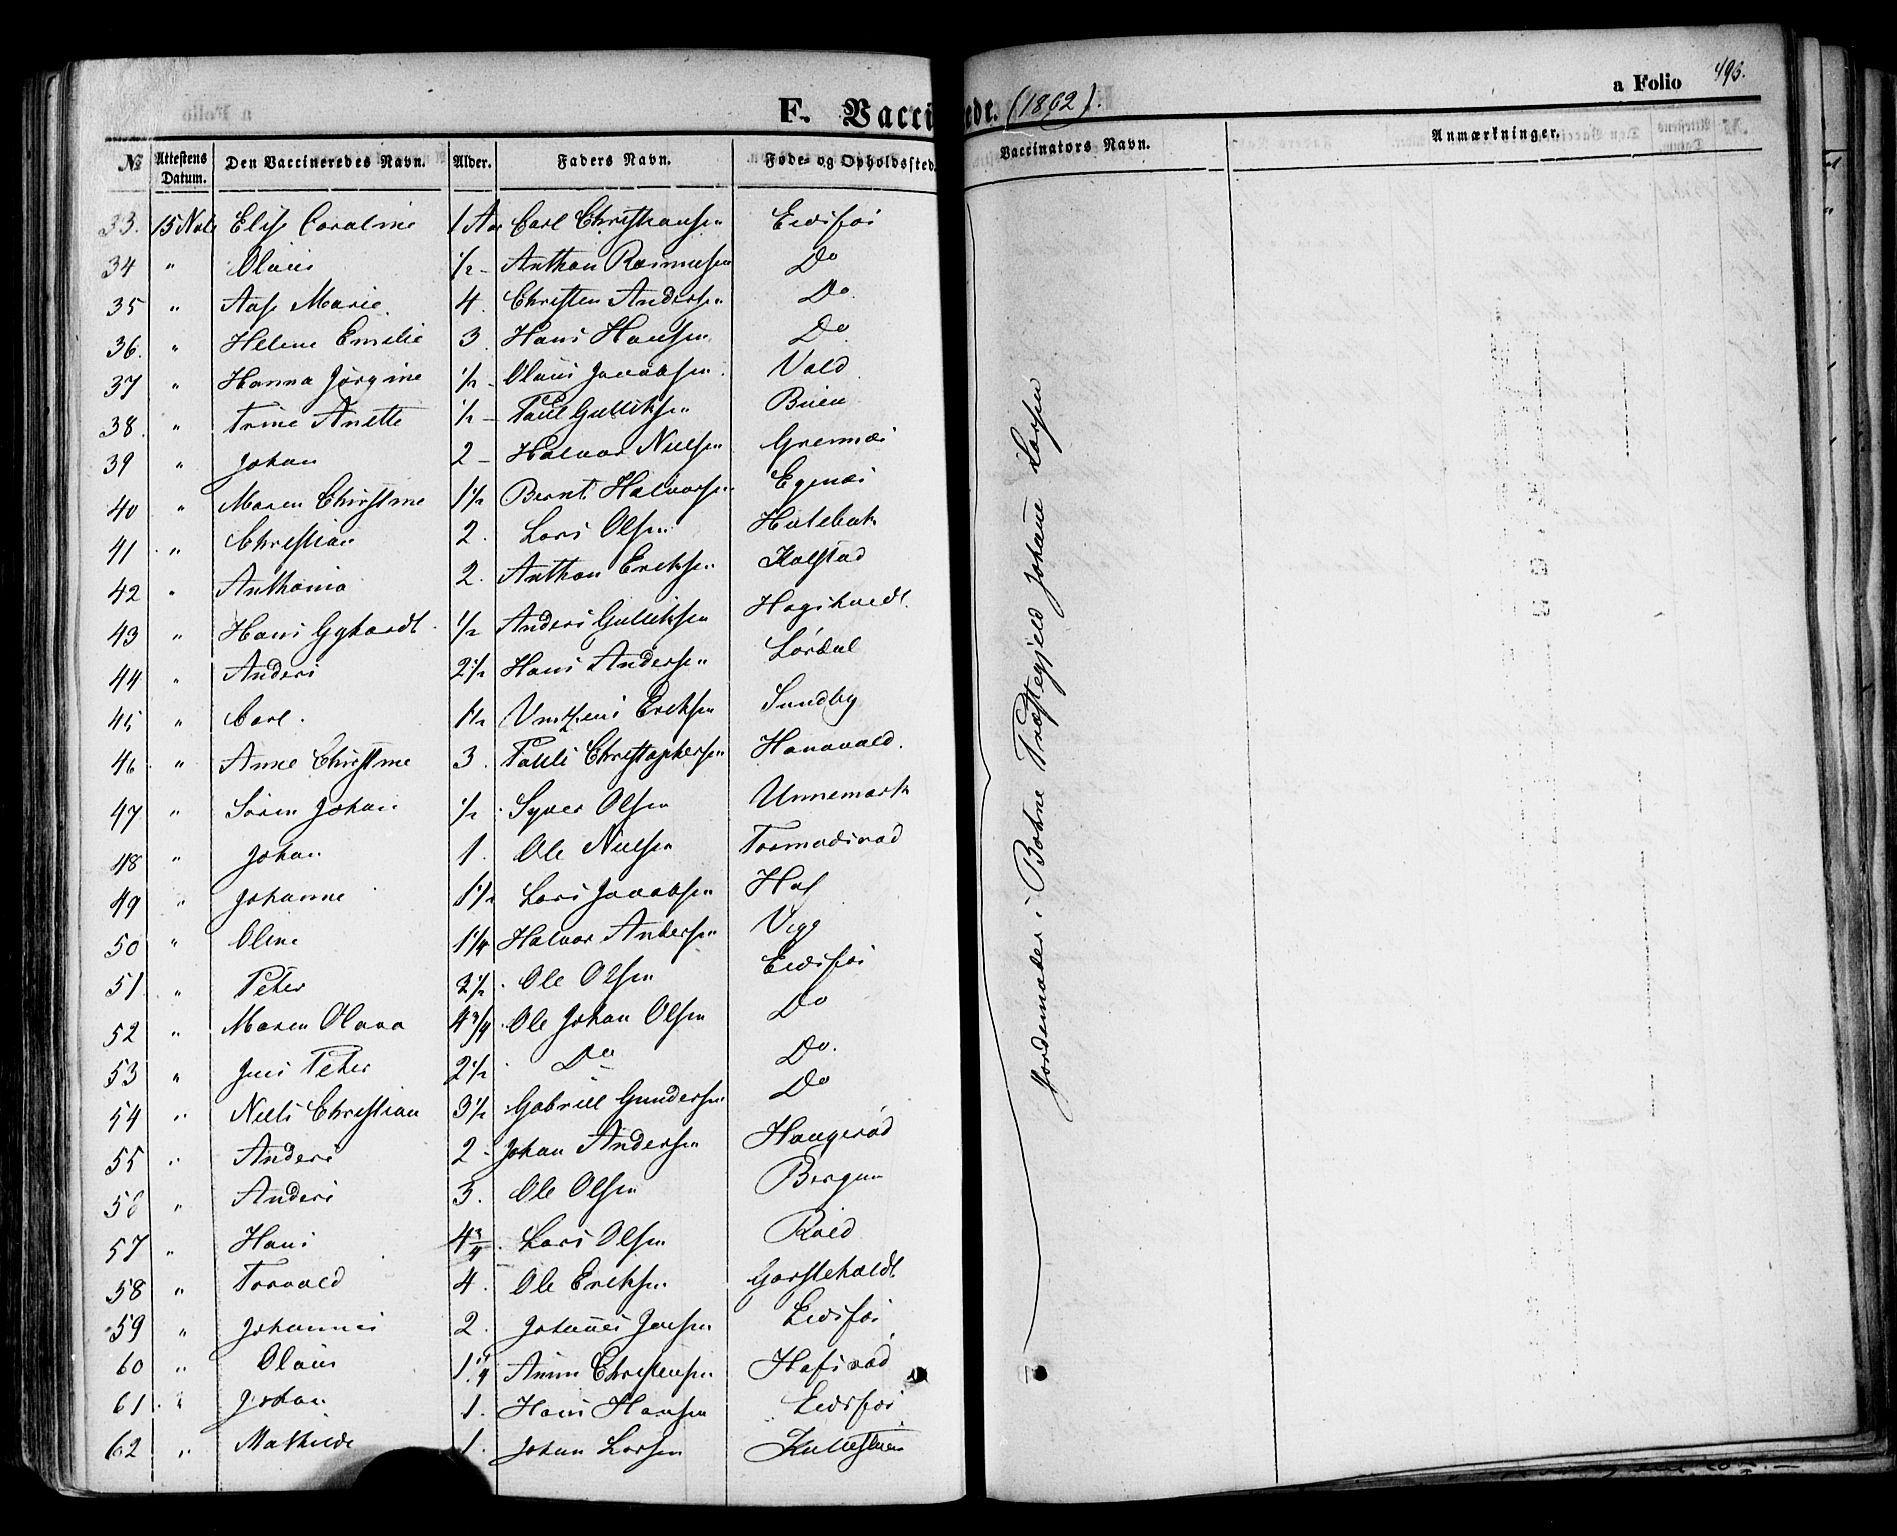 F. Vaccinerede. (1862). a Folio 493.
№ Attestens Datum. Den Vaccineredes Navn. Alder. Faders Navn. Føde- og Opholdssted. Vaccinators Navn. Anmærkninger.
33. 15 Elise Caroline 1 Aar Carl Christiansen Eidsfos
34 " Olaus 1/2 - Anthon Rasmusen Do
35 " Aase Marie. 4. Christen Andersen Do.
36. " Helene Emilie 3. Hans Hansen Do.
37 " Hanna Jörgine 1/2 - Olaus Jacobsen. Vold.
38. " Trine Anette 1/2 - Paul Gulliksen Buen
39 " Johan 2 - Halvor Nielsen Grennæs
40 " Maren Christine 1 1/2 Bernt Halvorsen Egenæs
41. " Christian 2. Lars Olsen Holebak
42 " Anthonia 2. Anthon Eriksen Kolstad
43 " Hans 1/2 Anders Gulliksen
44 " Anders 2 1/2 Hans Andersen Lördal
45 " Carl. 1 1/2 Eriksen Sundby
46. " Anne Christine 3. Christophersen Hanevold.
47 " Sören Johan 1/2. Syver Olsen Unnemark
48 " Johan 1. Ole Nielsen Tormodsrød
49 " Johanne 1 1/2 Lars Jacobsen Hof
50 " Oline 1 1/4 Halvor Andersen Vegg
51. " Peter 2 1/2. Ole Olsen Eidsfos
52 " Maren Olava 4 3/4. Ole Johan Olsen Do
53 " Jens Peter 2 1/2. Do Do.
54 " Niels Christian 3 1/2. Gabriel Gundersen Do
55 " Anders 2 - Johan Andersen Haugerød
56 " Anders 3. Ole Olsen Bergan
57 " Hans 4 3/4. Lars Olsen
58 " Torvald 4. Ole Eriksen
59 " Johannes 2. Johannes Jensen Eidsfos
60 " Olaus 1 1/4 Christensen Hafsrød
61. " Johan 1. Hans Hansen Eidsfos
62 " Mathilde 1. Johan Larsen
Jordemoder i Bohne Præstegjeld Johanne Larsen